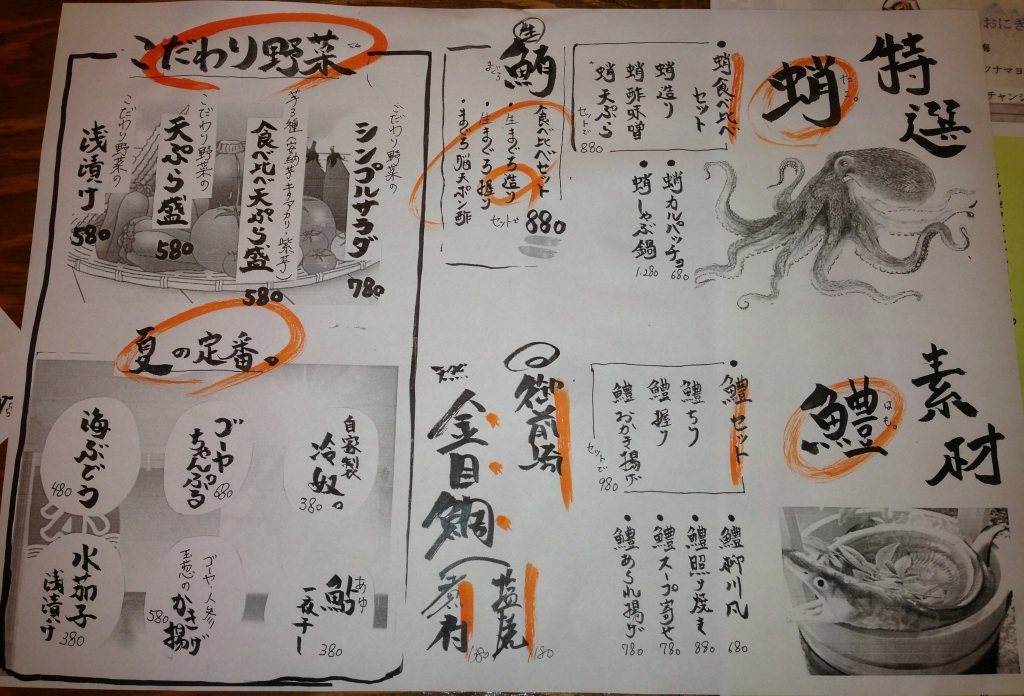 特選
素材
蛸
たこ。
・蛸食べ比べ
セット
蛸造り
蛸酢味噌
蛸天ぷら
セットで
880
・蛸カルパッチョ
680
・蛸しゃぶ鍋
1.280
鱧
はも。
・鱧セット
鱧ちり
鱧握り
鱧おかき揚げ
セットで
980
・鱧柳川風
680
・鱧照り焼き
880
・鱧スープ寄せ
780
・鱧あられ揚げ
780
生
鮪
まぐろ
食べ比べセット
・生まぐろ造り
・生まぐろ握り
・まぐろ脳天ポン酢
セットで
880
御前崎
金目鯛
塩焼
180
煮付
180
こだわり野菜
こだわり野菜の
シンプルサラダ
780
芋3種(安納芋・キタアカリ・紫芋)
食べ比べ天ぷら盛
580
こだわり野菜の
天ぷら盛
580
こだわり野菜の
浅漬け
580
夏の定番。
自家製
冷奴。
380
ゴーヤ
ちゃんぷる
680
海ぶどう
480
あゆ
鮎
一夜干し
380
ゴーヤ・人参
玉葱のかき揚げ
580
水茄子
浅漬け
380
おにぎ
梅
ツナマヨ
チャンジ